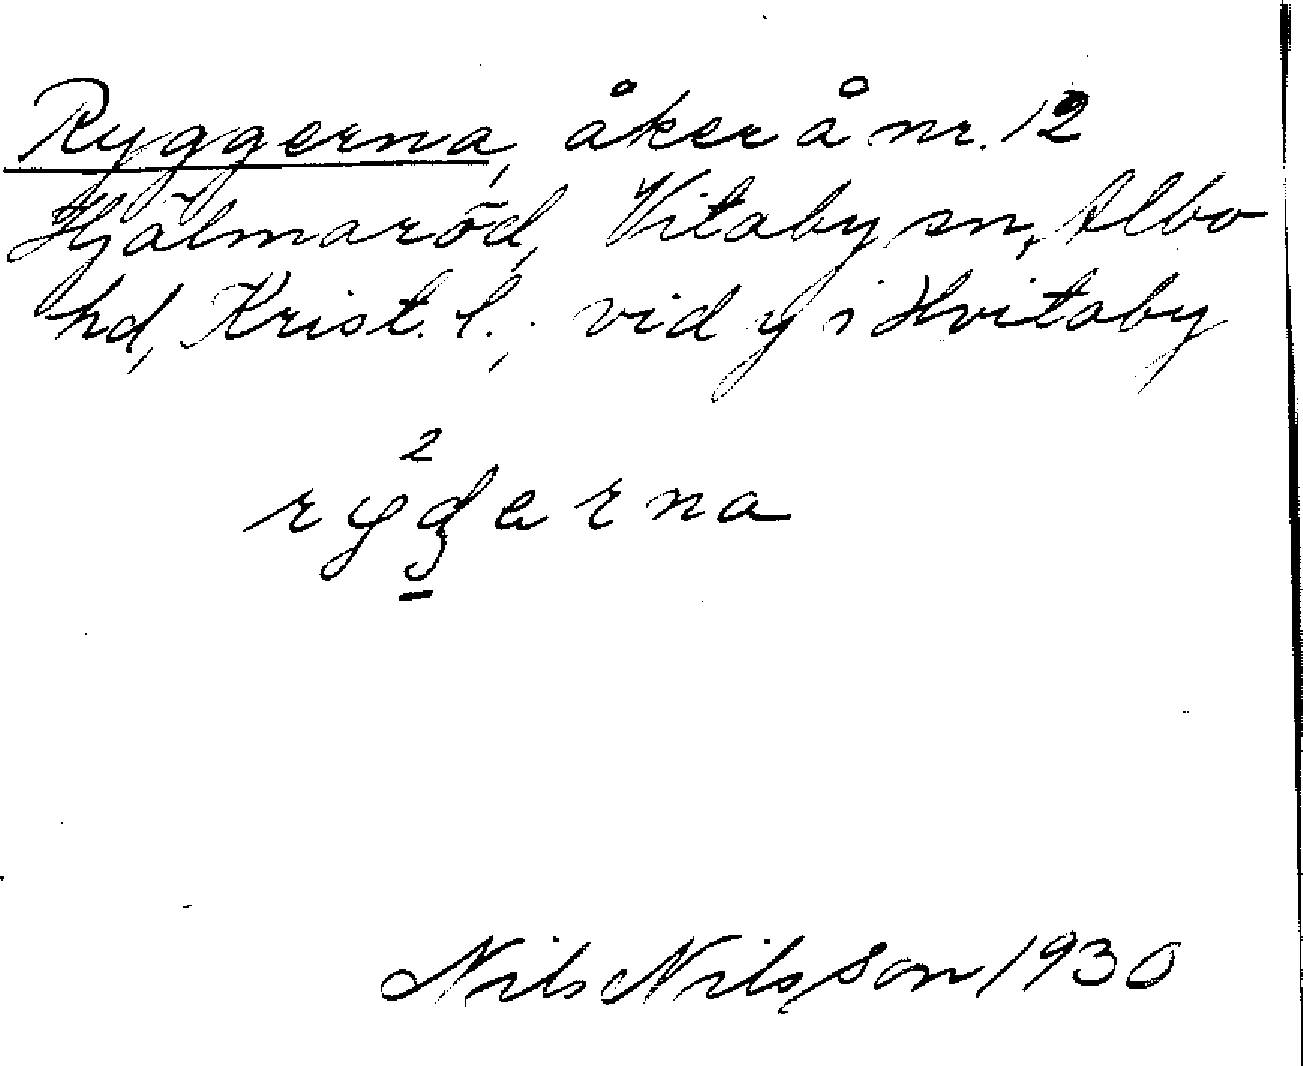 Ryggerna, åker å nr. 12
Hjälmaröd, Vitaby sn, Albo
hd, Krist. l.; vid y i Hvitaby
2
erna
Nils Nilsson 1930